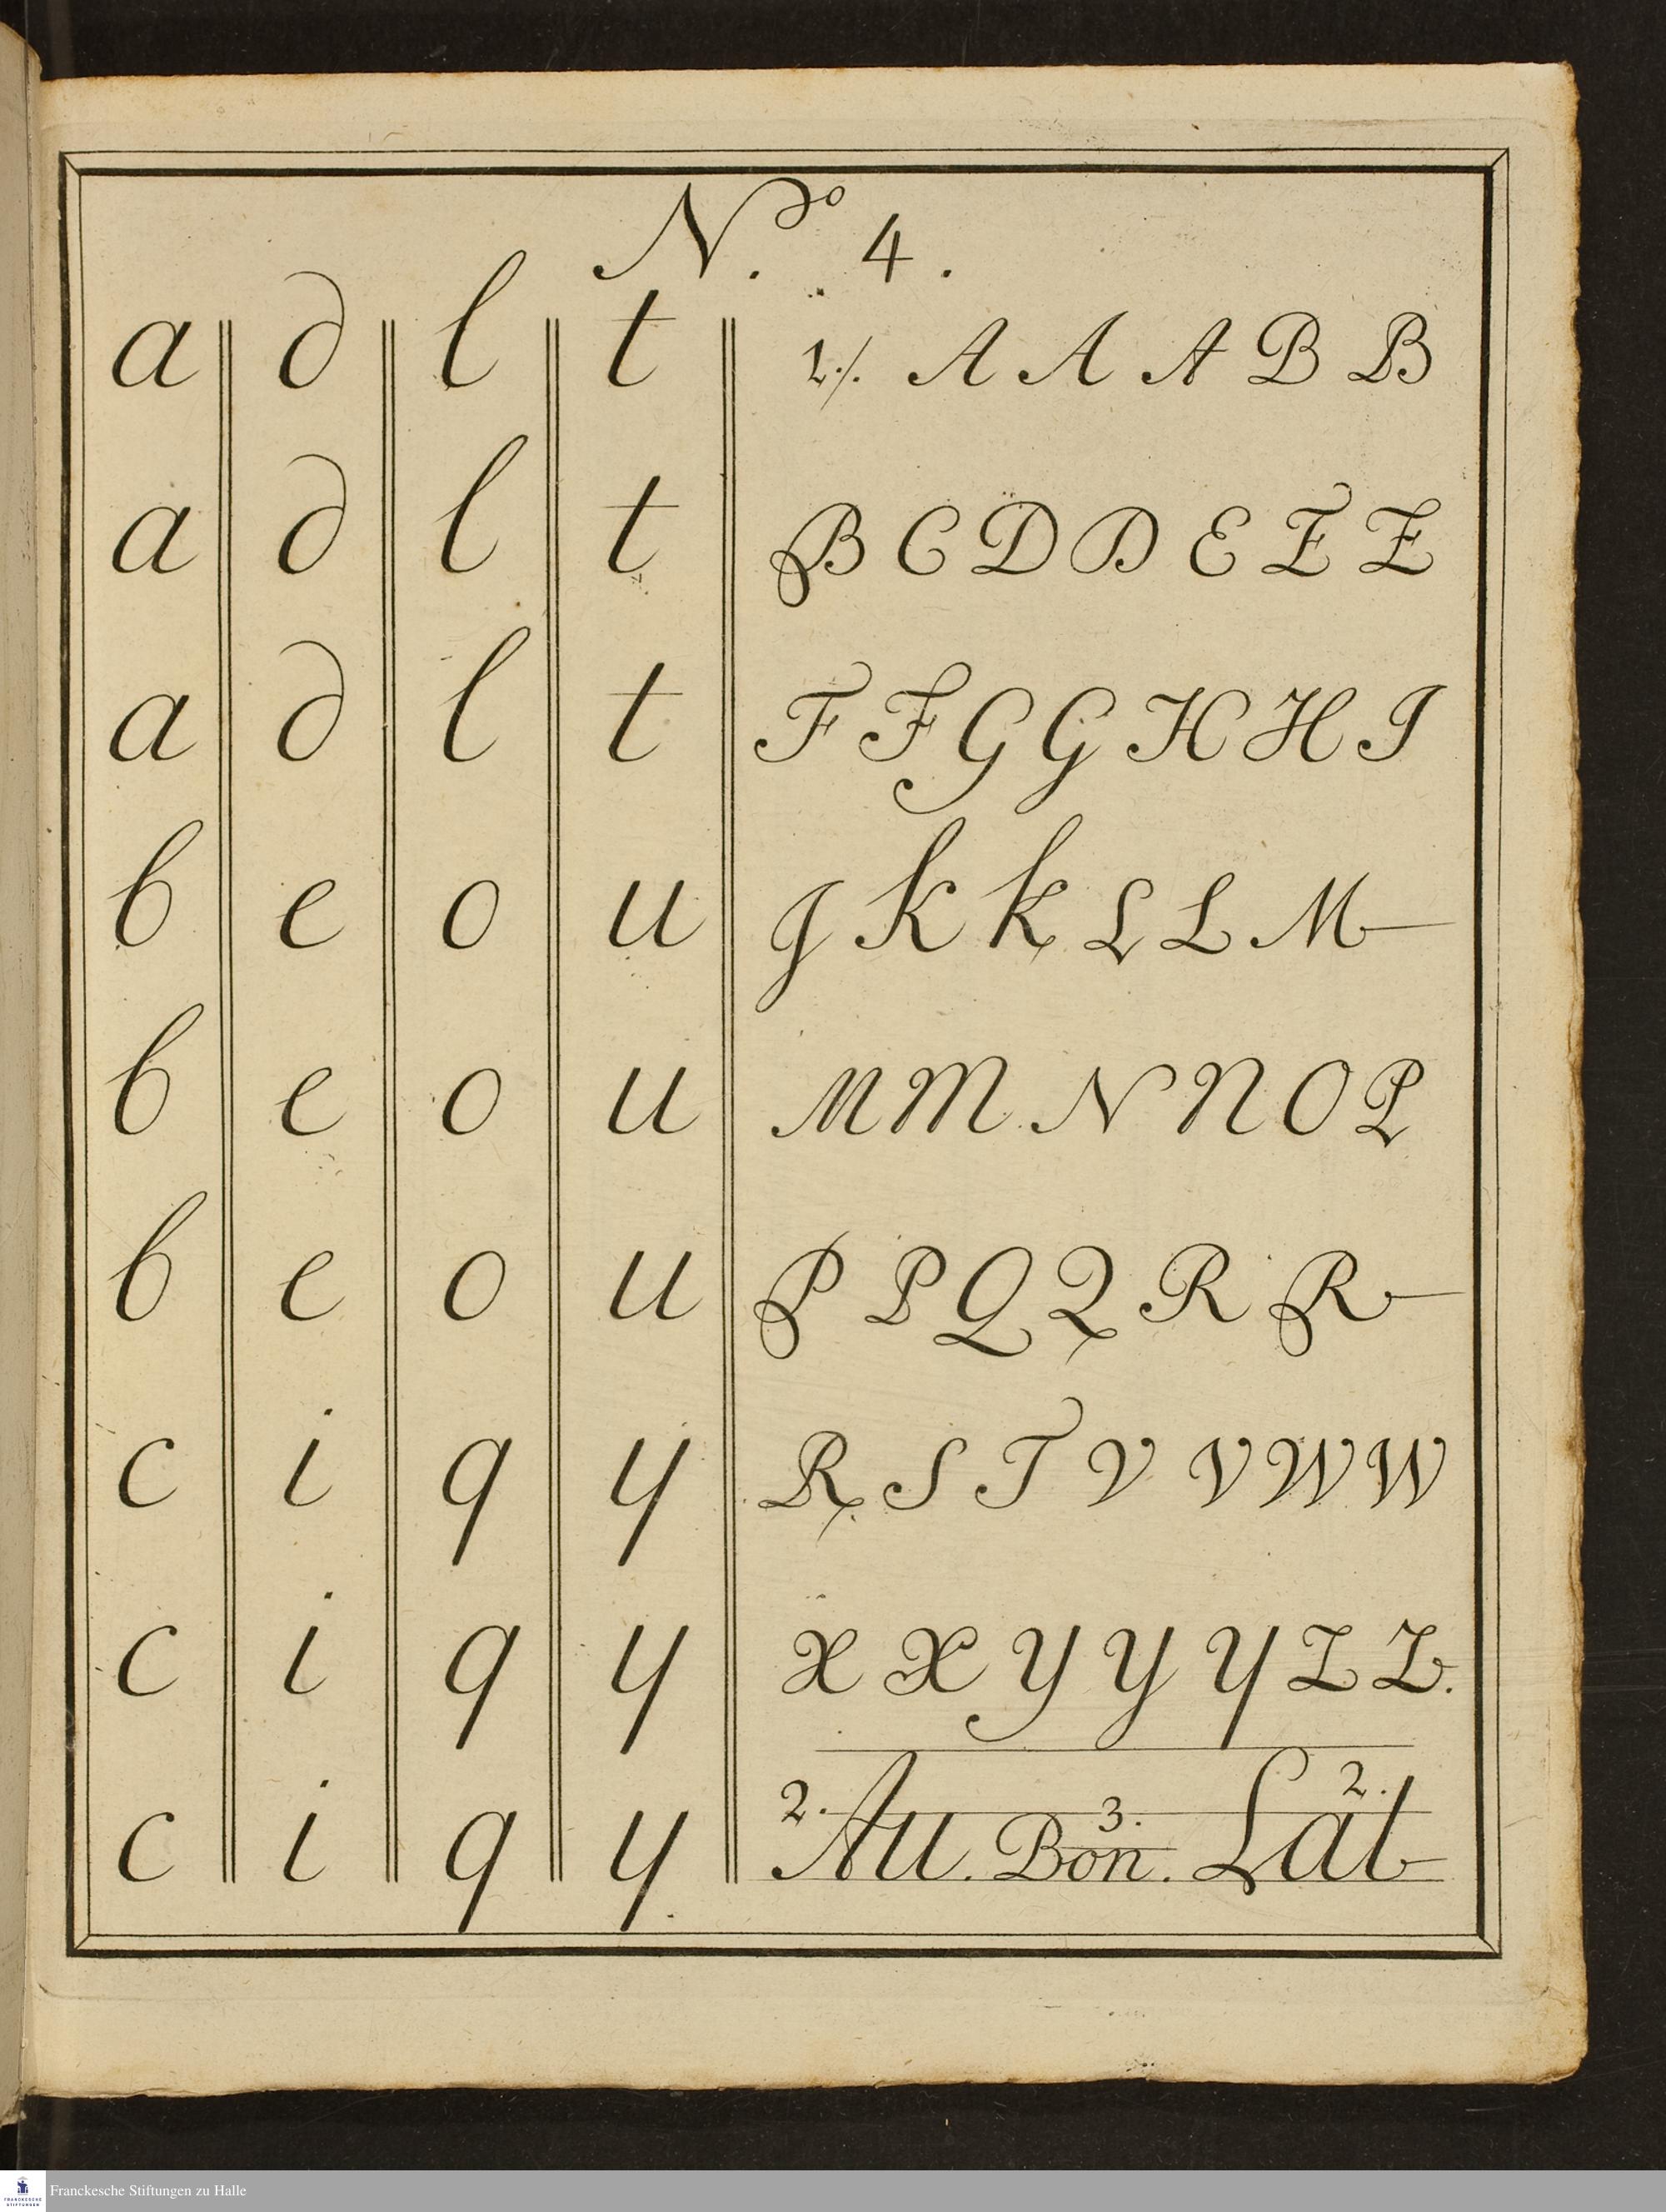 Nº. 4.
a d l t 1./. A A A B B
a d l t B C D D E E E
a d l t F F G G H H I
b e o u J K K L L M
b e o u M M N N O P
b e o u P P Q Q R R
c i q y R S T V V W W
c i q y X X Y Y Y Z Z.
c i q y 2. Au. 3. Bon. 2. Lat
Franckesche Stiftungen zu Halle
FRANCKESCHE
STIFTUNGEN